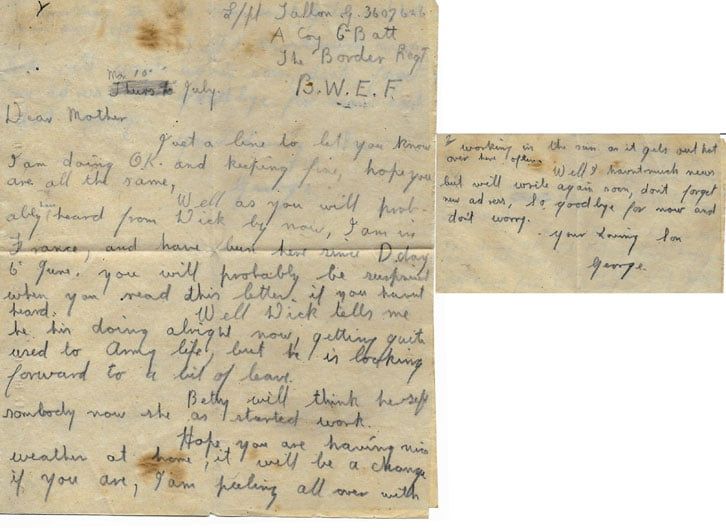 L/pl Fallon G. 3607626
A Coy 6 Batt
The Border Regt
B.W.E.F.
Mon 10th
Thurs July.
Dear Mother
Just a line to let you know
I am doing O.K. and keeping fine, hope you
are all the same,
Well as you will prob-
ably have heard from Dick by now, I am in
France, and have been here since D.day
6th June. you will probably be surprised
when you read this letter if you havnt
heard. Well Dick tells me
he his doing alright now, getting quite
used to Army life, but he is looking
forward to a bit of leave.
Betty will think herself
sombody now she as started work.
Hope you are having nice
weather at home, it will be a change
if you are, I am peeling all over with
working in the sun as it gets out hot
over here often.
Well I havnt much news
but will write again soon, dont forget
new adress, So goodbye for now and
dont worry.
Your Loving Son
George.